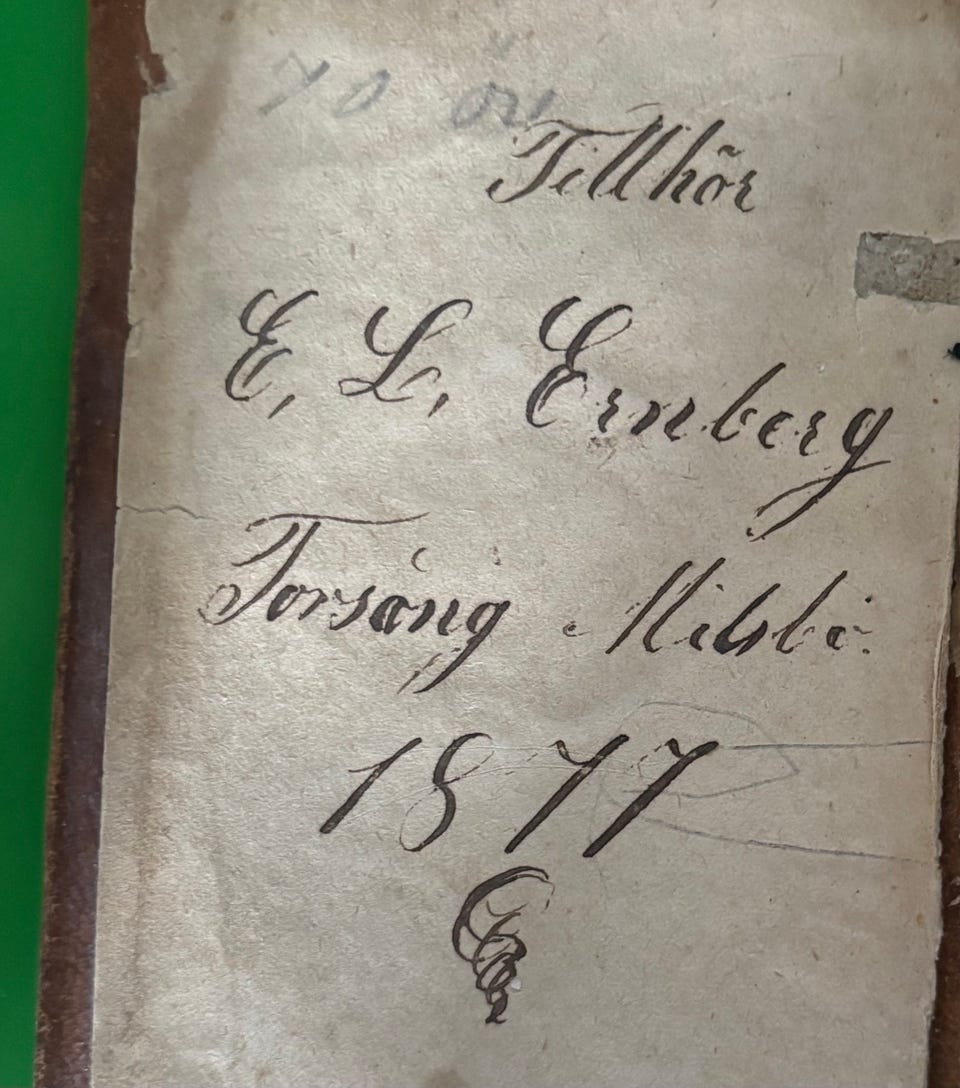 70 öre
Tillhör
E, L, Ernberg
Torsång Milsbo.
1877